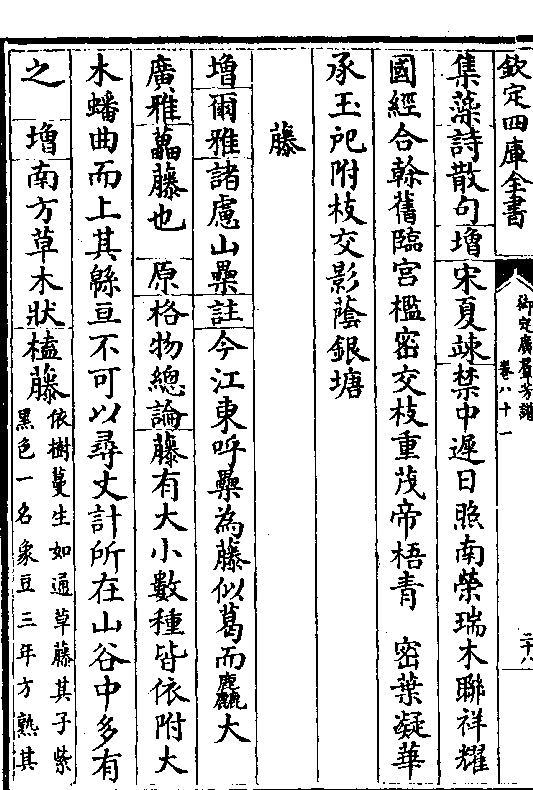 欽定四庫全書
御定廣羣芳譜
卷八十一
二十八
集藻詩散句增宋夏竦禁中遲日照南榮瑞木聯祥耀
國經合榦舊臨宮檻密交枝重茂帝梧青　密葉凝華
承玉戺附枝交影蔭銀塘
藤
增爾雅諸慮山櫐註今江東呼櫐為藤似葛而麤大
廣雅藟藤也　原格物總論藤有大小數種皆依附大
木蟠曲而上其緜亘不可以尋丈計所在山谷中多有
之　增南方草木狀榼藤
依樹蔓生如通草藤其子紫
黑色一名象豆三年方熟其